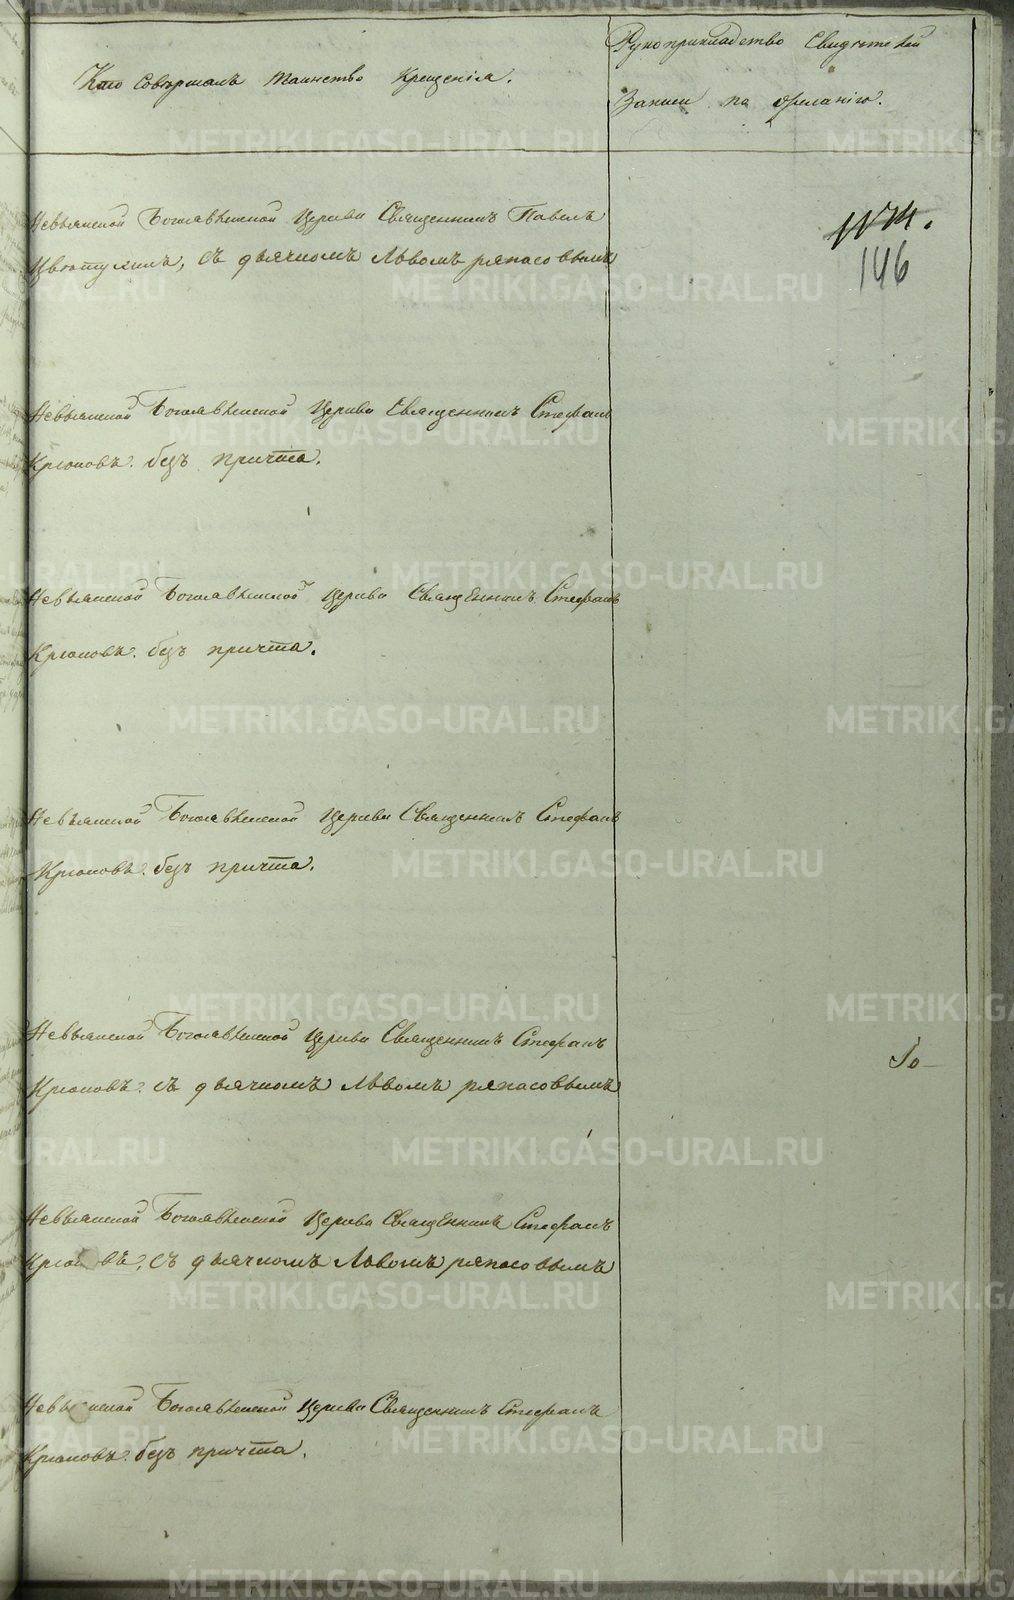 Кто совѣршалъ таинство крещенія.
Рукоприкладство Свидѣтелей
Записи по Желанію.
146
Невьянской Богоявленской Церкви Священникъ Павелъ
съ дьячкомъ Львомъ ряпасовымъ
Невьянской Богоявленской Церкви Священникъ Стефанъ
Крюковъ. безъ причта.
Невьянской Богоявленской Церкви Священникъ Стефанъ
Крюковъ. безъ причта.
Невьянской Богоявленской Церкви Священникъ Стефанъ
Крюковъ. безъ причта.
Невьянской Богоявленской Церкви Священникъ Стефанъ
Крюковъ. съ дьячкомъ Львомъ ряпасовымъ
Невьянской Богоявленской Церкви Священникъ Стефанъ
Крюковъ, съ дьячкомъ Львомъ ряпасовымъ
Невьянской Богоявленской Церкви Священникъ Стефанъ
Крюковъ. безъ причта.
METRIKI.GASO-URAL.RU